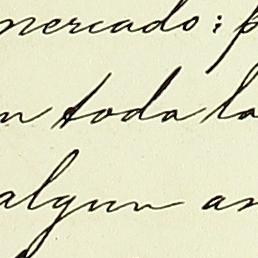 mercado; p
n toda la
algun an